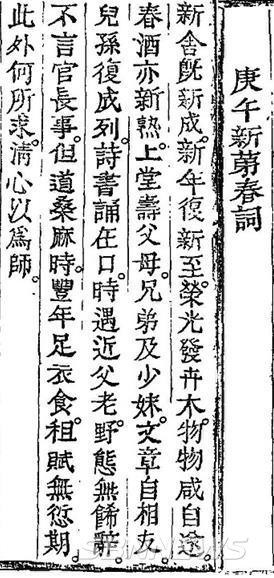 庚午新第春詞
新舍旣新成。新年復新至。榮光發卉木。物物咸自遂。
春酒亦新熟。上堂壽父母。兄弟及少妹。文章自相友。
兒孫復成列。詩書誦在口。時遇近父老。野態無餙辭。
不言官長事。但道桑麻時。豐年足衣食。租賦無愆期。
此外何所求。淸心以爲師。